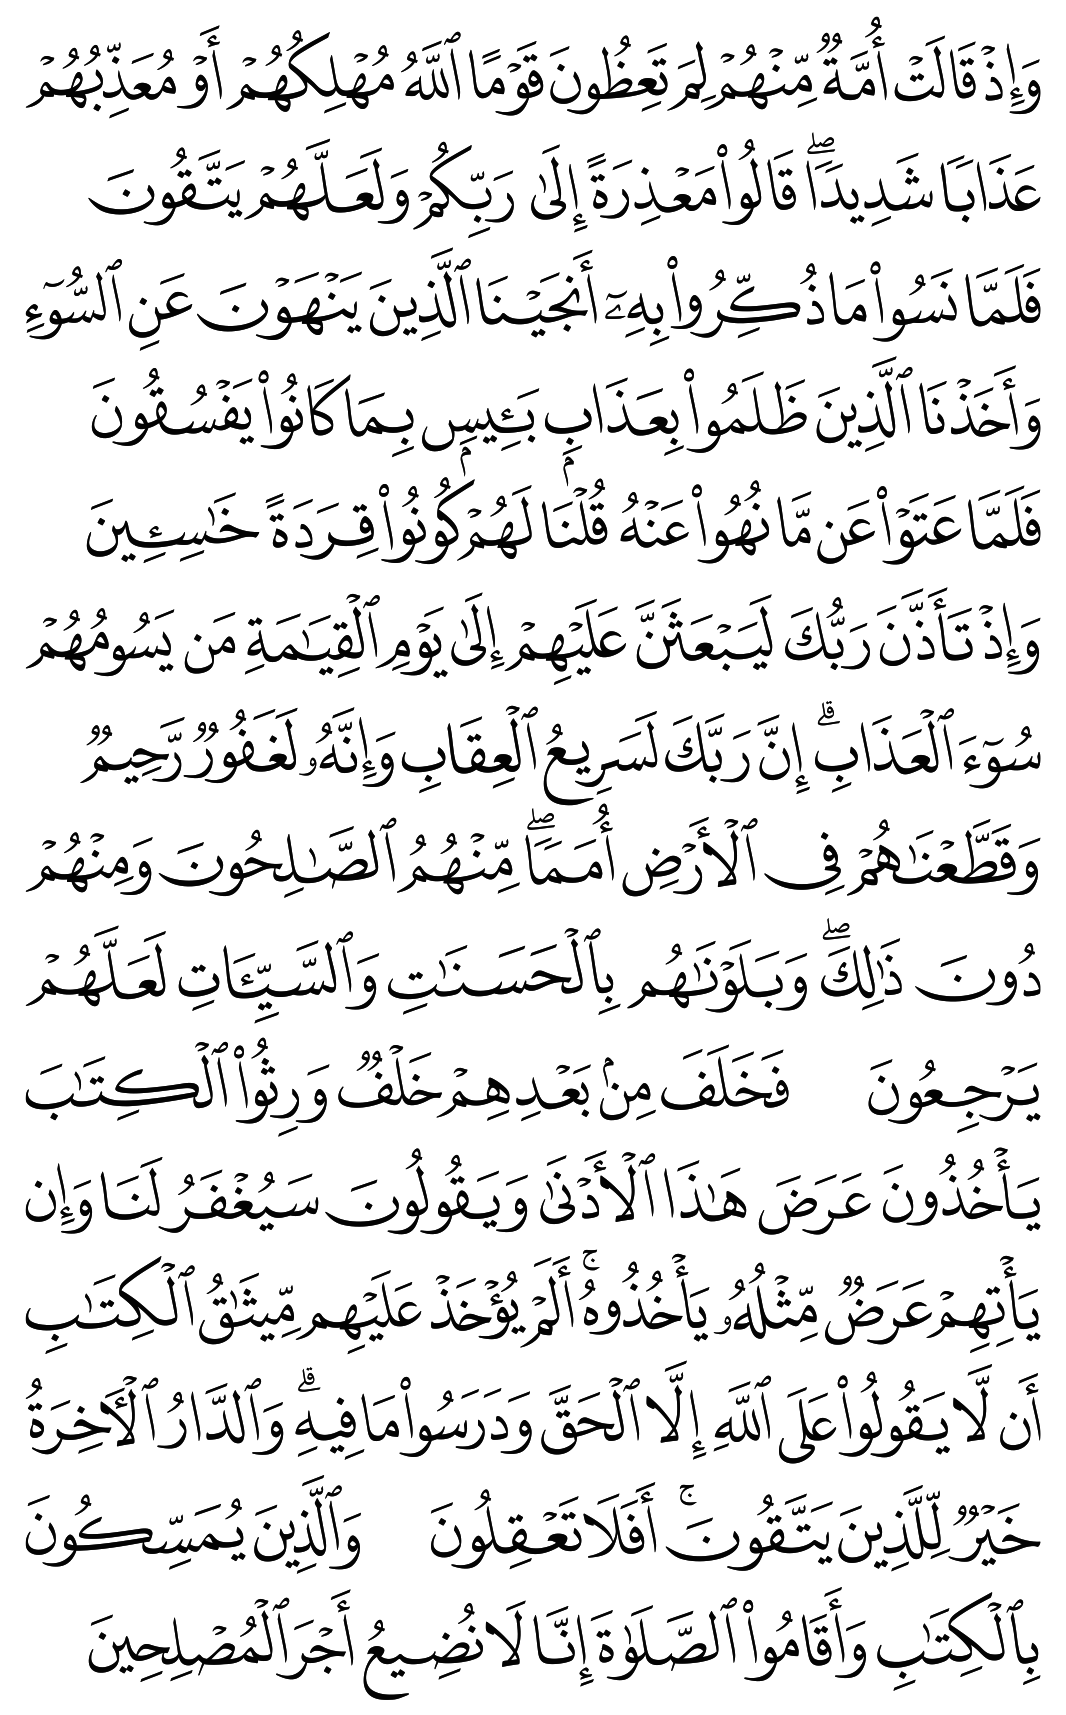 وَإِذۡ قَالَتۡ أُمَّةٞ مِّنۡهُمۡ لِمَ تَعِظُونَ قَوۡمًا ٱللَّهُ مُهۡلِكُهُمۡ أَوۡ مُعَذِّبُهُمۡ
عَذَابٗا شَدِيدٗاۖ قَالُواْ مَعۡذِرَةً إِلَىٰ رَبِّكُمۡ وَلَعَلَّهُمۡ يَتَّقُونَ
فَلَمَّا نَسُواْ مَا ذُكِّرُواْ بِهِۦٓ أَنجَيۡنَا ٱلَّذِينَ يَنۡهَوۡنَ عَنِ ٱلسُّوٓءِ
وَأَخَذۡنَا ٱلَّذِينَ ظَلَمُواْ بِعَذَابِۭ بَـِٔيسِۭ بِمَا كَانُواْ يَفۡسُقُونَ
فَلَمَّا عَتَوۡاْ عَن مَّا نُهُواْ عَنۡهُ قُلۡنَا لَهُمۡ كُونُواْ قِرَدَةً خَٰسِـِٔينَ
وَإِذۡ تَأَذَّنَ رَبُّكَ لَيَبۡعَثَنَّ عَلَيۡهِمۡ إِلَىٰ يَوۡمِ ٱلۡقِيَٰمَةِ مَن يَسُومُهُمۡ
سُوٓءَ ٱلۡعَذَابِۗ إِنَّ رَبَّكَ لَسَرِيعُ ٱلۡعِقَابِ وَإِنَّهُۥ لَغَفُورٞ رَّحِيمٞ
وَقَطَّعۡنَٰهُمۡ فِي ٱلۡأَرۡضِ أُمَمٗاۖ مِّنۡهُمُ ٱلصَّٰلِحُونَ وَمِنۡهُمۡ
دُونَ ذَٰلِكَۖ وَبَلَوۡنَٰهُم بِٱلۡحَسَنَٰتِ وَٱلسَّيِّـَٔاتِ لَعَلَّهُمۡ
يَرۡجِعُونَ فَخَلَفَ مِنۢ بَعۡدِهِمۡ خَلۡفٞ وَرِثُواْ ٱلۡكِتَٰبَ
يَأۡخُذُونَ عَرَضَ هَٰذَا ٱلۡأَدۡنَىٰ وَيَقُولُونَ سَيُغۡفَرُ لَنَا وَإِن
يَأۡتِهِمۡ عَرَضٞ مِّثۡلُهُۥ يَأۡخُذُوهُۚ أَلَمۡ يُؤۡخَذۡ عَلَيۡهِم مِّيثَٰقُ ٱلۡكِتَٰبِ
أَن لَّا يَقُولُواْ عَلَى ٱللَّهِ إِلَّا ٱلۡحَقَّ وَدَرَسُواْ مَا فِيهِۗ وَٱلدَّارُ ٱلۡأٓخِرَةُ
خَيۡرٞ لِّلَّذِينَ يَتَّقُونَۚ أَفَلَا تَعۡقِلُونَ وَٱلَّذِينَ يُمَسِّكُونَ
بِٱلۡكِتَٰبِ وَأَقَامُواْ ٱلصَّلَوٰةَ إِنَّا لَا نُضِيعُ أَجۡرَ ٱلۡمُصۡلِحِينَ